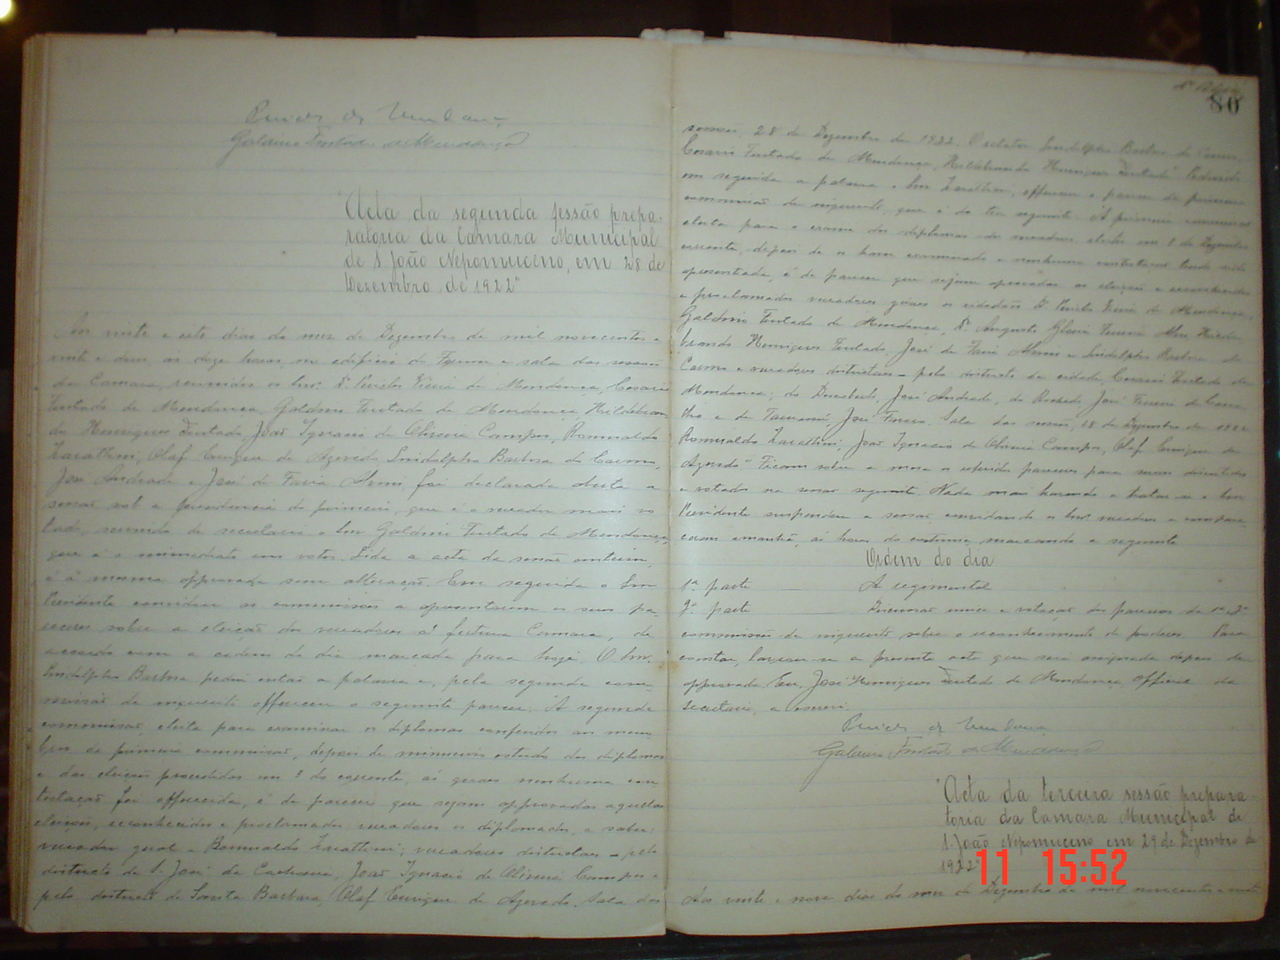 Galdino Furtado de Mendonça
"Acta da segunda sessão prepa-
ratoria da Camara Municipal
de S. João Nepomuceno, em 28 de
Dezembro de 1922"
Aos vinte e oito dias do mez de Dezembro de mil novecentos e
vinte e dois, ás doze horas, no edificio do Forum e sala das sessões
da Camara, reunidos os Snrs. Dr. Pericles Vieira de Mendonça, Cesario
Furtado de Mendonça, Galdino Furtado de Mendonça, Hildebran-
do Henriques Furtado, João Ignacio de Oliveira Campos, Romualdo
Zarattini, Olaf Eurique de Azevedo, Lindolpho Barbosa do Carmo,
José Andrade e José de Faria foi declarada aberta a
sessão sob a presidencia do primeiro, que é o vereador mais vo-
tado, servindo de secretario o Snr Galdino Furtado de Mendonça,
que é o immediato em votos. Lida a acta da sessão anterior,
é a mesma approvada sem alteração. Em seguida o Snr.
Presidente convidou as commissões a apresentarem os seus pa-
receres sobre a eleição dos vereadores á futura Camara, de
accordo com a ordem do dia marcada para hoje. O Snr.
Lindolpho Barbosa pediu então a palavra e, pela segunda com-
missão de inquerito offereceu o seguinte parecer: "A segunda
commissão, eleita para examinar os diplomas conferidos aos mem-
bros da primeira commissão, depois de minucioso estudo dos diplomas
e das eleições procedidas em do corrente, ás quaes nenhuma con-
testação foi offerecida, é de parecer que sejam approvadas aquellas
eleições, reconhecidos e proclamados vereadores os diplomados, a saber:
vereador geral – Romualdo Zarattini; vereadores districtaes – pelo
districto de S. José de Cachoeira, João Ignacio de Oliveira Campos e
pelo districto de Santa Barbara, Olaf Eurique de Azevedo. Sala das
80
sessões, 28 de Dezembro de 1922. O relator Lindolpho Barbosa do Carmo,
Cesario Furtado de Mendonça, Hildebrando Henriques Furtado" Pedindo
em seguida a palavra o Snr Zarattini, offerece o parecer da primeira
commissão de inquerito, que é do teor seguinte: "A primeira commissão
eleita para o exame dos diplomas de vereadores eleitos em de Dezembro
corrente, depois de os haver examinado e nenhuma contestação tendo sido
apresentada, é de parecer que sejam approvadas as eleições e reconhecidos
e proclamados vereadores geraes os cidadãos Dr. Pericles Vieira de Mendonça,
Galdino Furtado de Mendonça, Dr. Augusto Gloria Hilde-
brando Henriques Furtado, José de Faria e Lindolpho Barbosa do
Carmo e vereadores districtaes – pelo districto da cidade, Cesario Furtado de
Mendonça; do Descoberto, José Andrade, de Rochedo José
e de Taruassú, José Sala das sessões, 28 de Dezembro de 1922
Romualdo Zarattini, João Ignacio de Oliveira Campos, Olaf Eurique de
Azevedo" Ficam sobre a mesa os referidos pareceres para serem discutidos
e votados na sessão seguinte. Nada mais havendo a tratar-se o Snr
Presidente suspendeu a sessão convidando os Snrs. vereadores a compare-
cerem amanhã, ás horas do costume, marcando a seguinte
Ordem do dia
1ª parte — A regimental
2ª parte — Discussão unica e votação dos pareceres da 1ª e 2ª
commissão de inquerito sobre o reconhecimento de poderes. Para
constar, lavrou-se a presente acta que será assignada depois de
approvada. Eu, José Henriques Furtado de Mendonça, official da
secretaria, a escrevi.
Galdino Furtado de Mendonça
"Acta da terceira sessão prepara-
toria da Camara Municipal de
S. João Nepomuceno em 29 de Dezembro de
1922"
11 15:52
Aos vinte e nove dias do mez de Dezembro de mil novecentos e vinte